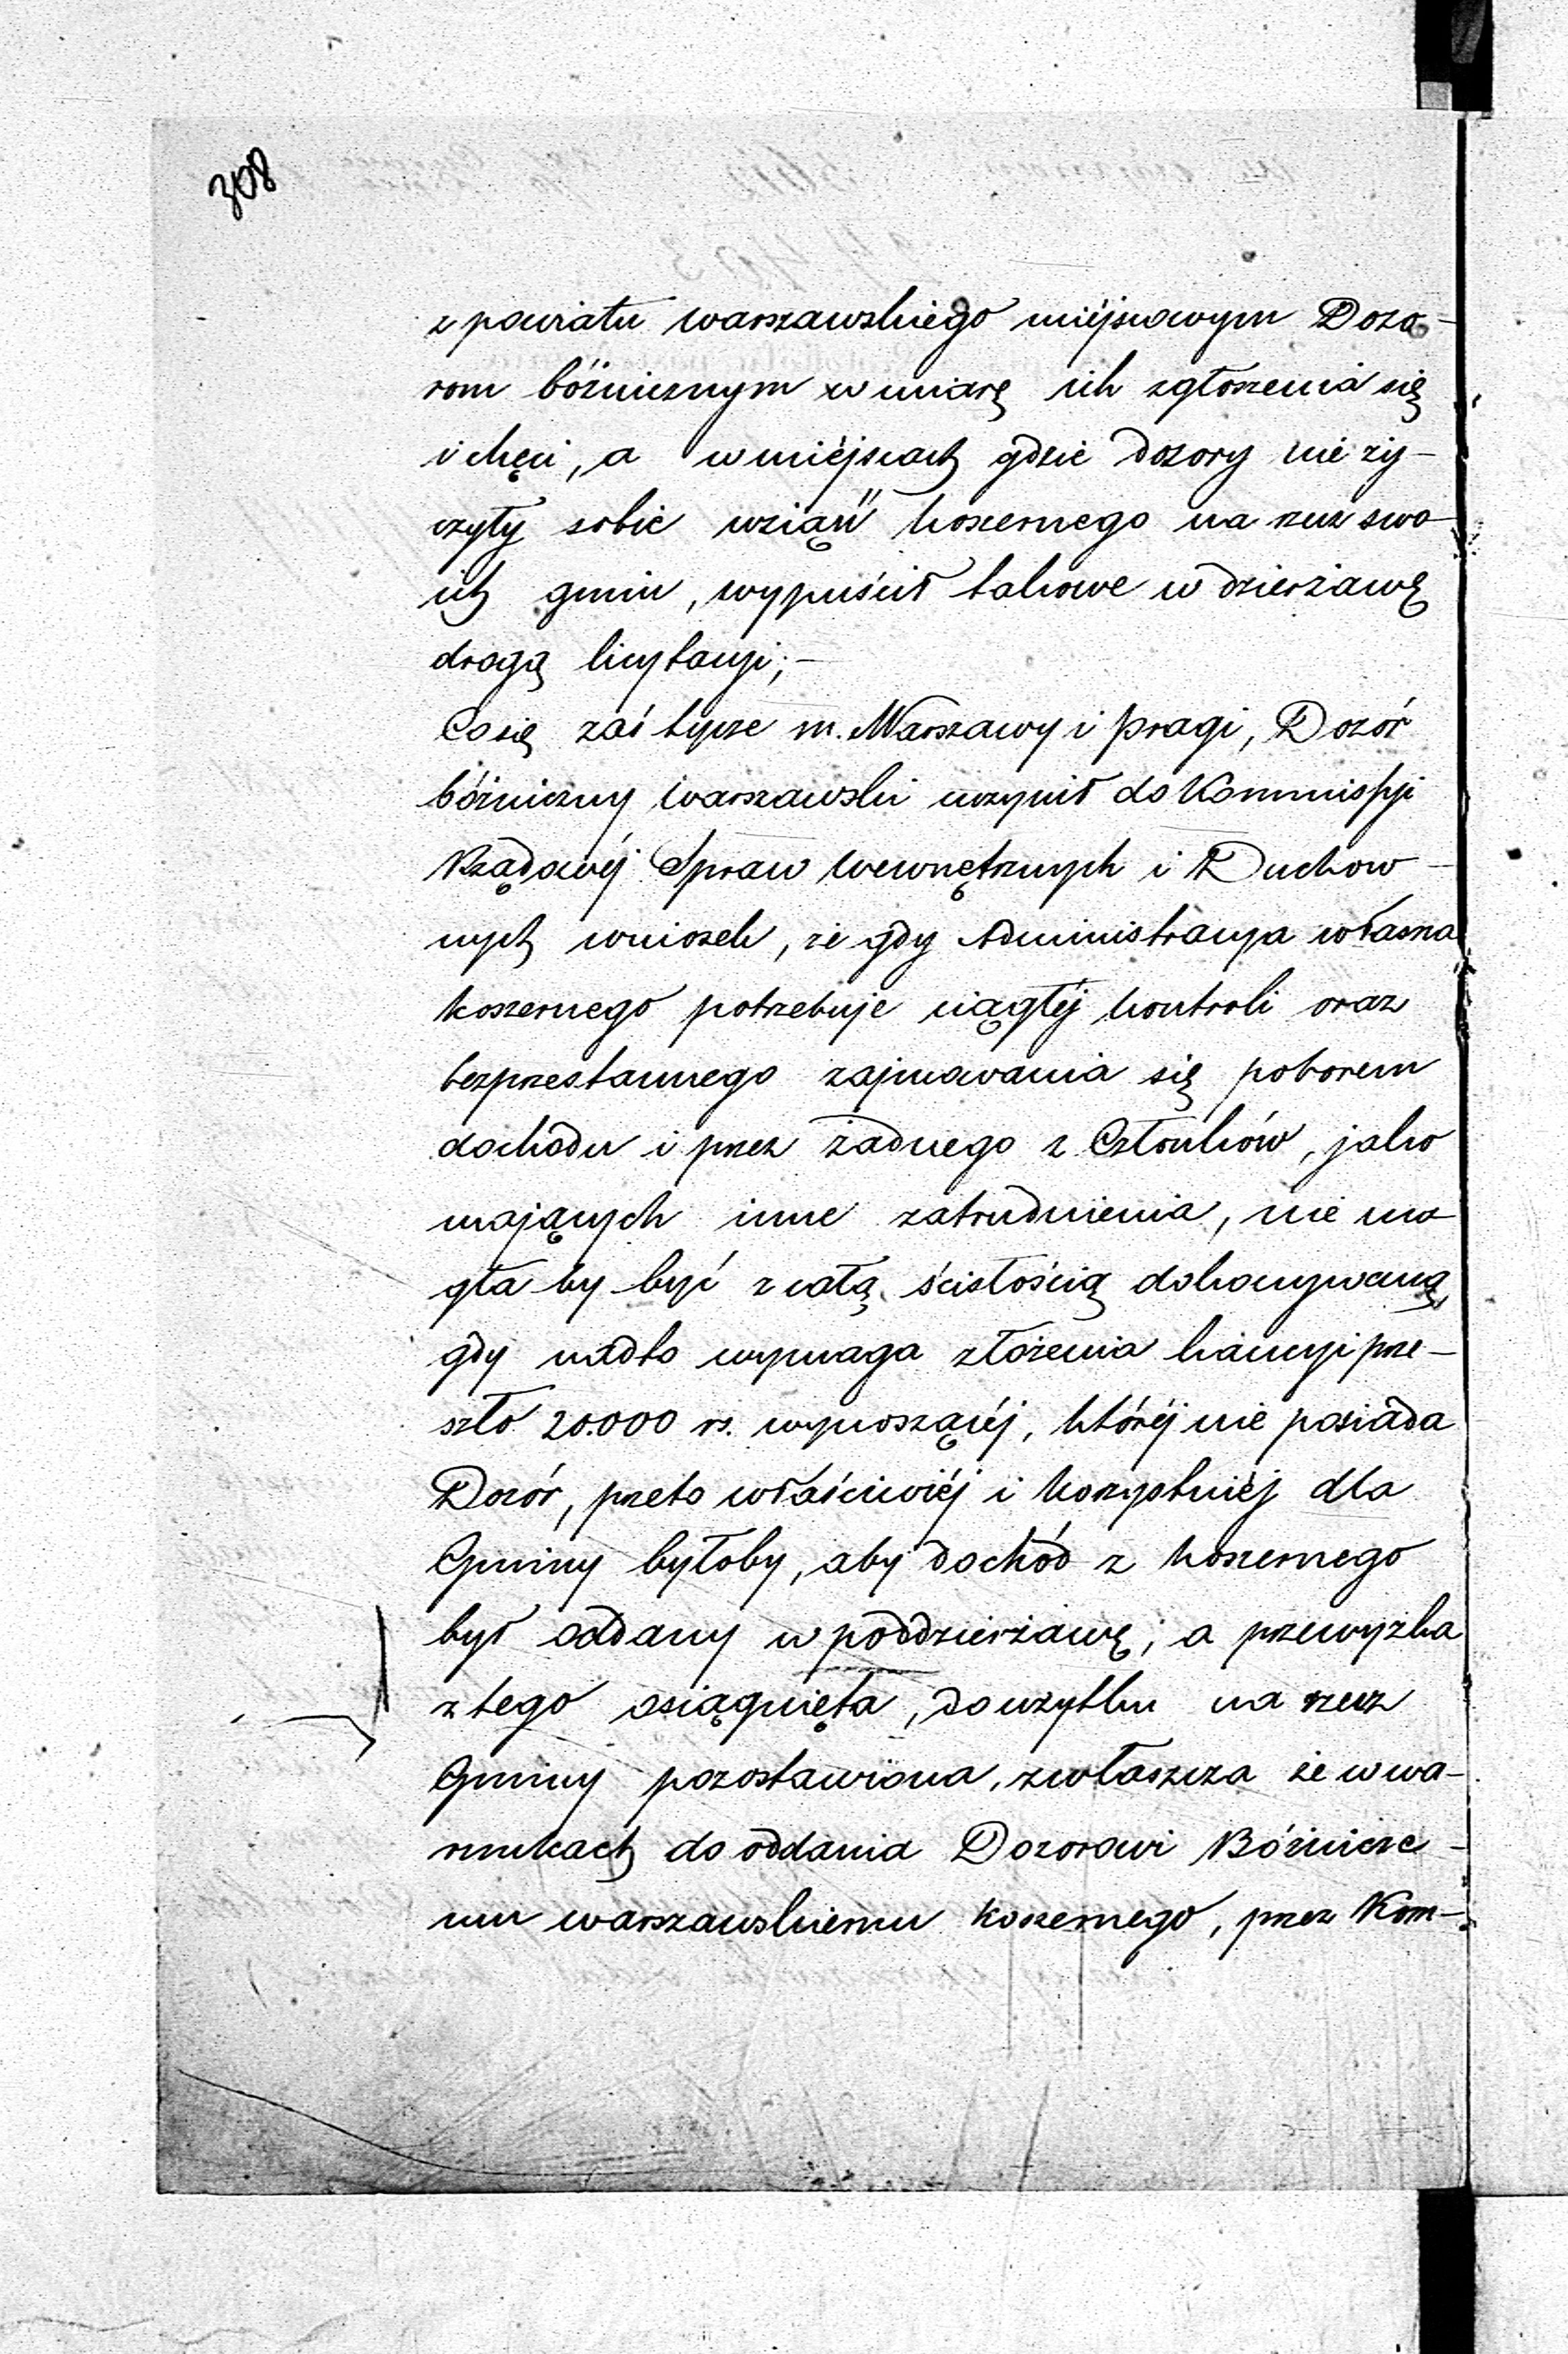 308
z powiatu warszawskiego miéjscowym Dozo-
rom bóżnicznym w miarę ich zgłoszenia się
i chęci, a w miéjscach gdzie dozory nie ży-
czyły sobie wziąść koszernego na rzecz swo-
ich gmin, wypuścił takowe w dzierżawę
drogą licytacyi; -
Co się zaś tycze m. Warszawy i Pragi, Dozór
bóżniczny warszawski uczynił do Kommissyi
Rządowéj Spraw Wewnętrznych i Duchow-
nych wniosek, że gdy Administracya własna
koszernego potrzebuje ciągłéj kontroli oraz
bezprzestannego zajmowania się poborem
dochodu i przez żadnego z Członków, jako
mających inne zatrudnienia, nie mo-
gła by być z całą ścisłością dokonywaną,
gdy nadto wymaga złożenia kaucyi prze-
szło 20.000 rs. wynoszącéj, któréj nie posiada
Dozór, przeto właściwiéj i korzystniéj dla
Gminy byłoby, aby dochód z koszernego
był oddany w poddzierżawę; a przewyżka
z tego osiągnięta, do użytku na rzecz
Gminy pozostawiona, zwłaszcza że w wa-
runkach do oddania Dozorowi Bóżnicze-
mu warszawskiemu koszernego, przez Kom-